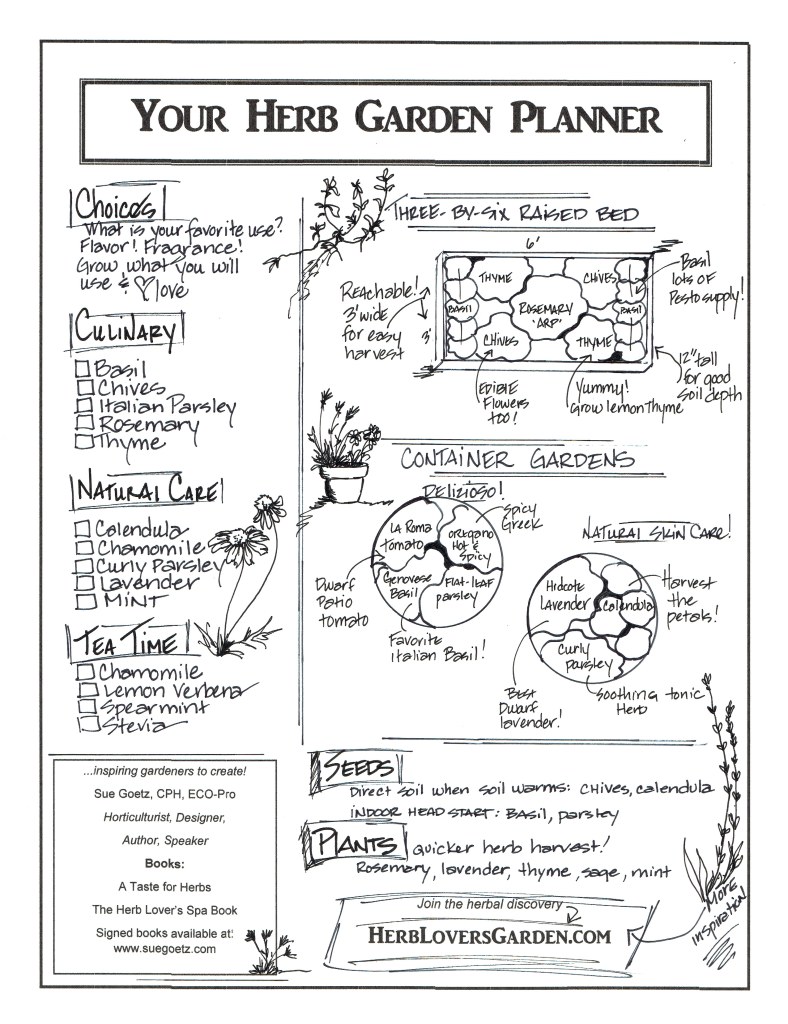 YOUR HERB GARDEN PLANNER
Choices
What is your favorite use?
Flavor! Fragrance!
Grow what you will
use & love
CULINARY
Basil
Chives
Italian Parsley
Rosemary
Thyme
NATURAL CARE
Calendula
Chamomile
Curly Parsley
Lavender
MINT
TEA TIME
Chamomile
Lemon Verbena
Spearmint
Stevia
...inspiring gardeners to create!
Sue Goetz, CPH, ECO-Pro
Horticulturist, Designer,
Author, Speaker
Books:
A Taste for Herbs
The Herb Lover's Spa Book
Signed books available at:
www.suegoetz.com
THREE-BY-SIX RAISED BED
6'
Reachable!
3' wide
for easy
harvest
3'
BASIL
THYME
CHIVES
ROSEMARY
'ARP'
CHIVES
THYME
BASIL
Basil
lots of
Pesto supply!
12" tall
for good
soil depth
EDIBLE
Flowers
too!
Yummy!
Grow lemon thyme
CONTAINER GARDENS
DELIZIOSO!
LA Roma
tomato
OREGANO
Hot &
Spicy
Genovese
Basil
Flat-leaf
parsley
Spicy
Greek
Dwarf
Patio
tomato
Favorite
Italian Basil!
NATURAL SKIN CARE!
Hidcote
LAVENDER
Calendula
Curly
parsley
Harvest
the
petals!
BEST
Dwarf
lavender!
Soothing tonic
Herb
SEEDS
Direct soil when soil warms: chives, calendula
INDOOR HEAD START: Basil, parsley
PLANTS
quicker herb harvest!
Rosemary, lavender, thyme, sage, mint
Join the herbal discovery
HERBLOVERSGARDEN.COM
MORE
inspiration